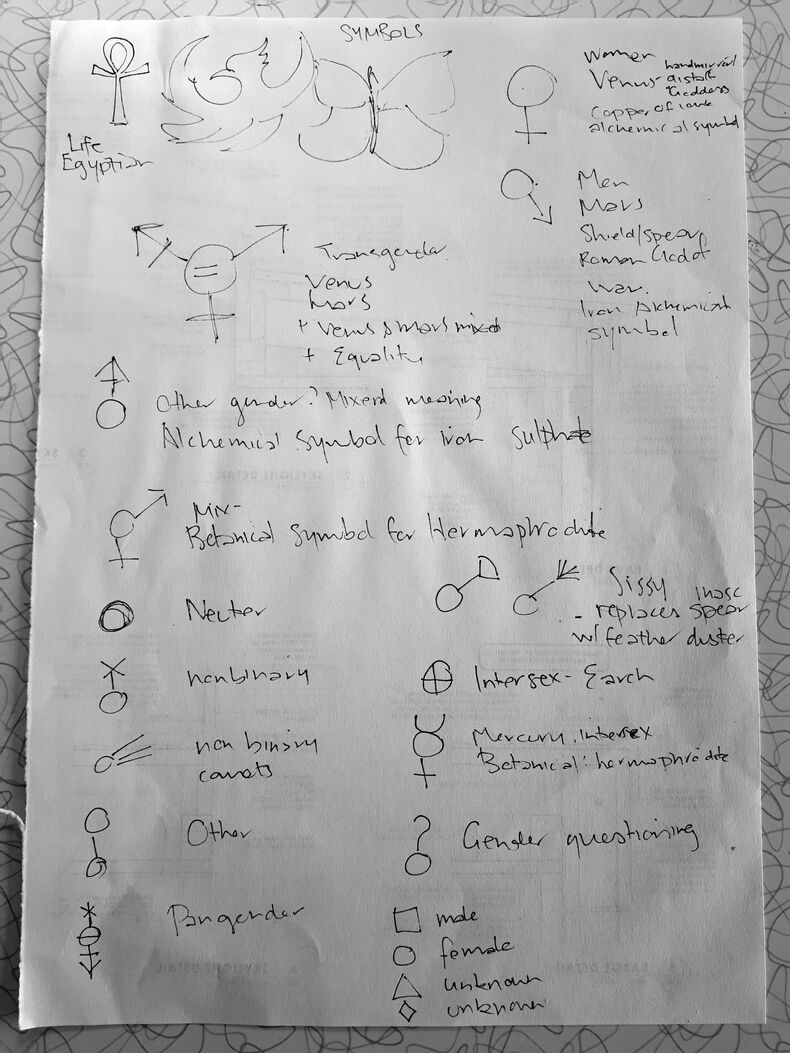 SYMBOLS
Life
Egyptian
Women
Venus - handmirror/
distaff
Goddess
Copper of love
alchemical symbol
Men
Mars
Shield/spear
Roman God of
War.
Iron Alchemical
symbol
Transgender
Venus
Mars
+ Venus & Mars mixed
+ Equality
Other gender? Mixed meaning
Alchemical Symbol for iron sulphate
Mix-
Botanical Symbol for Hermaphrodite
Neuter
Sissy
- replaces spear
w/ feather duster
nonbinary
Intersex - Earth
non binary
Mercury. intersex
Botanical: hermaphrodite
Other
? Gender questioning
Pangender
male
female
unknown
unknown